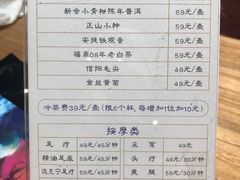 新会小青柑陈年普洱 69元/壶
正山小种 59元/壶
安提铁观音 59元/壶
福鼎08年老白茶 59元/壶
信阳毛尖 49元/壶
金丝黄菊 49元/壶
冲茶费39元/壶(限6个杯, 每增加1位加10元)
按摩类
足疗 49元/45分钟 采耳 49元
精油足底 59元/45分钟 头疗 49元/30分钟
达克宁足疗 59元/45分钟 爽腿 49元/30分钟